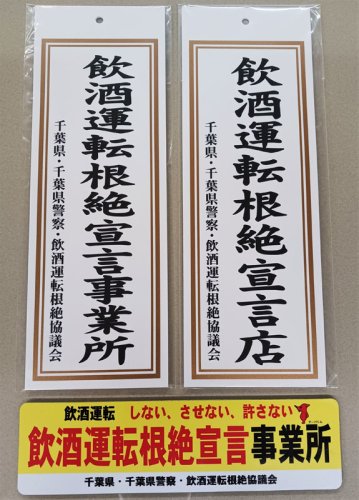 飲酒運転根絶宣言事業所
千葉県・千葉県警察・飲酒運転根絶協議会
飲酒運転根絶宣言店
千葉県・千葉県警察・飲酒運転根絶協議会
飲酒運転 しない、させない、許さない
飲酒運転根絶宣言事業所
千葉県・千葉県警察・飲酒運転根絶協議会